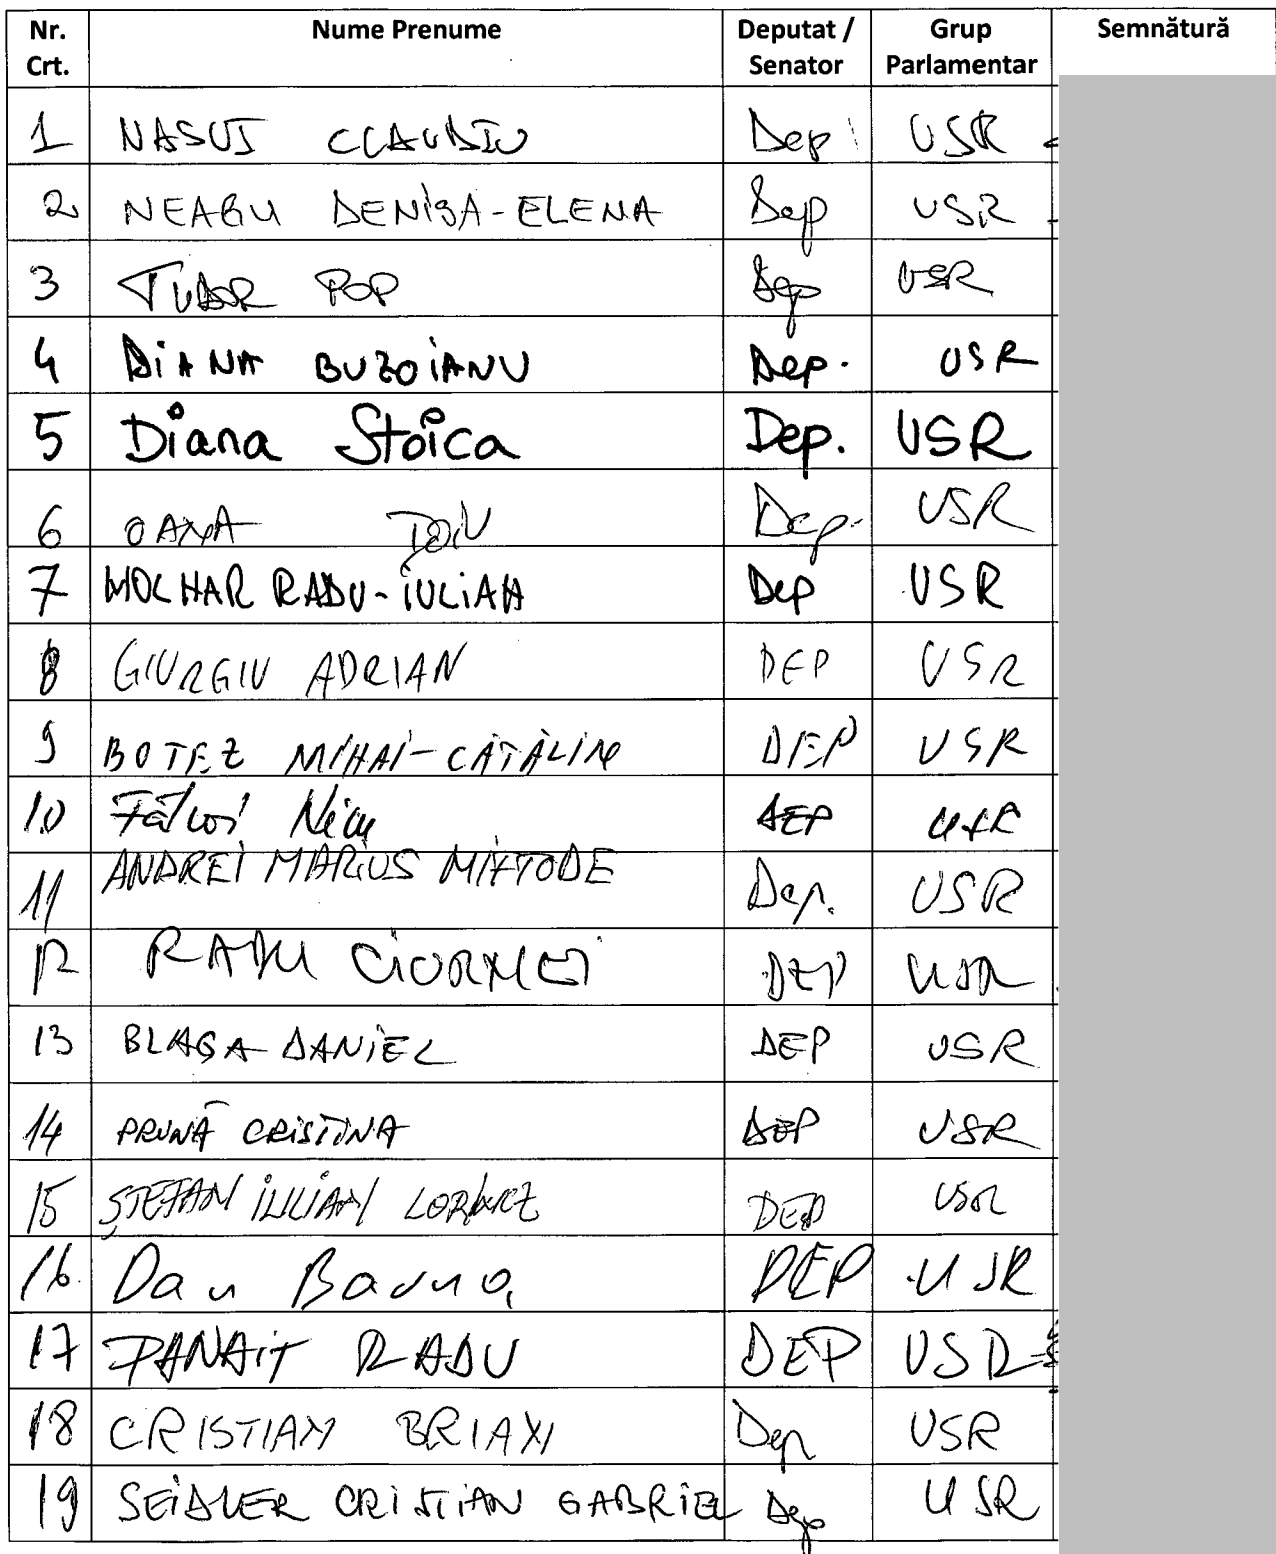 Nr. Crt. Nume Prenume Deputat / Senator Grup Parlamentar Semnătură
1 NASUI CLAUDIU Dep USR
2 NEAGU DENISA-ELENA Dep USR
3 TUDOR POP Dep USR
4 DIANA BUZOIANU Dep. USR
5 Diana Stoica Dep. USR
6 OANA ȚOIU Dep. USR
7 MOLNAR RADU-IULIAN Dep USR
8 GIURGIU ADRIAN DEP USR
9 BOTEZ MIHAI-CĂTĂLIN DEP USR
10 Fălcoi Nicu DEP USR
11 ANDREI MARIUS MIFTODE Dep. USR
12 RADU CIORNEI DEP USR
13 BLAGA DANIEL DEP USR
14 PRUNĂ CRISTINA DEP USR
15 ȘTEFAN IULIAN LORINCZ DEP USR
16 Dan Barna DEP USR
17 PANAIT RADU DEP USR
18 CRISTIAN BRIAN Dep USR
19 SEIDLER CRISTIAN GABRIEL Dep USR